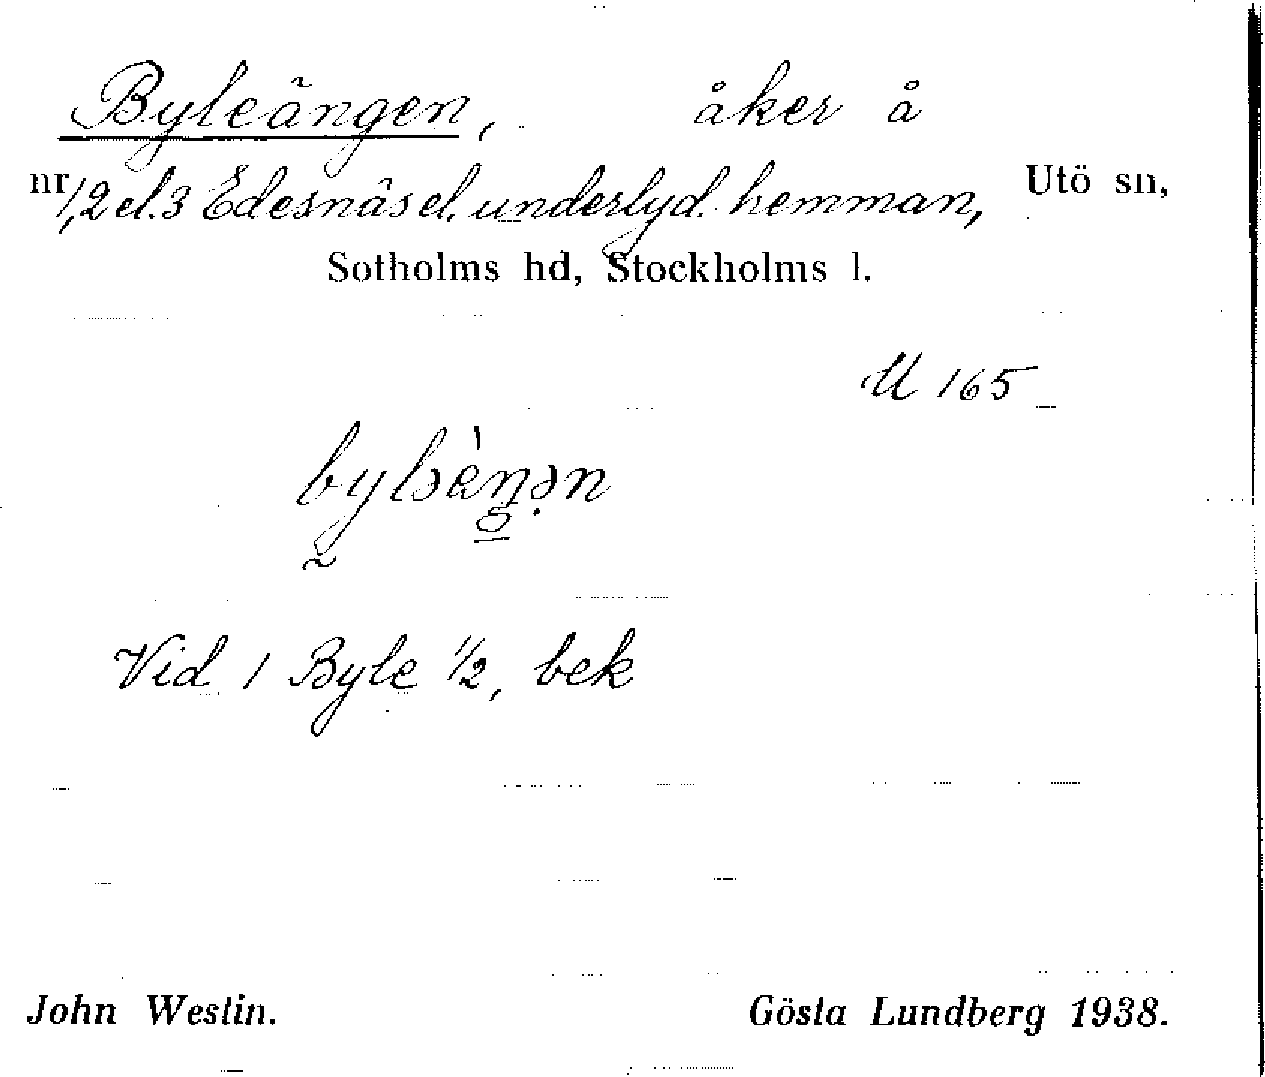 Byleängen, åker å
nr 1, 2 el. 3 Edesnäs el. underlyd. hemman, Utö sn,
Sotholms hd, Stockholms l.
U 165
Vid 1 Byle 1/2, bek
John Westin. Gösta Lundberg 1938.